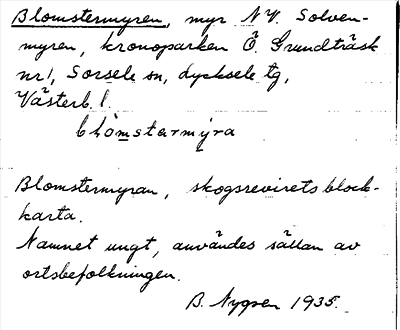 Blomstermyren, myr N.V. Solven-
myren, kronoparken Ö. Grundträsk
nr 1, Sorsele sn, Lycksele tg,
Västerb. l.
blòmstarmýra
Blomstermyran, skogsrevirets block-
karta.
Namnet ungt, användes sällan av
ortsbefolkningen.
B. Nygren 1935.